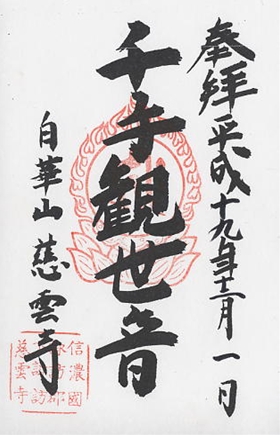 奉拝 平成十九年十二月一日
千手観世音
白華山 慈雲寺
信濃國
諏訪郡
下諏訪
慈雲寺